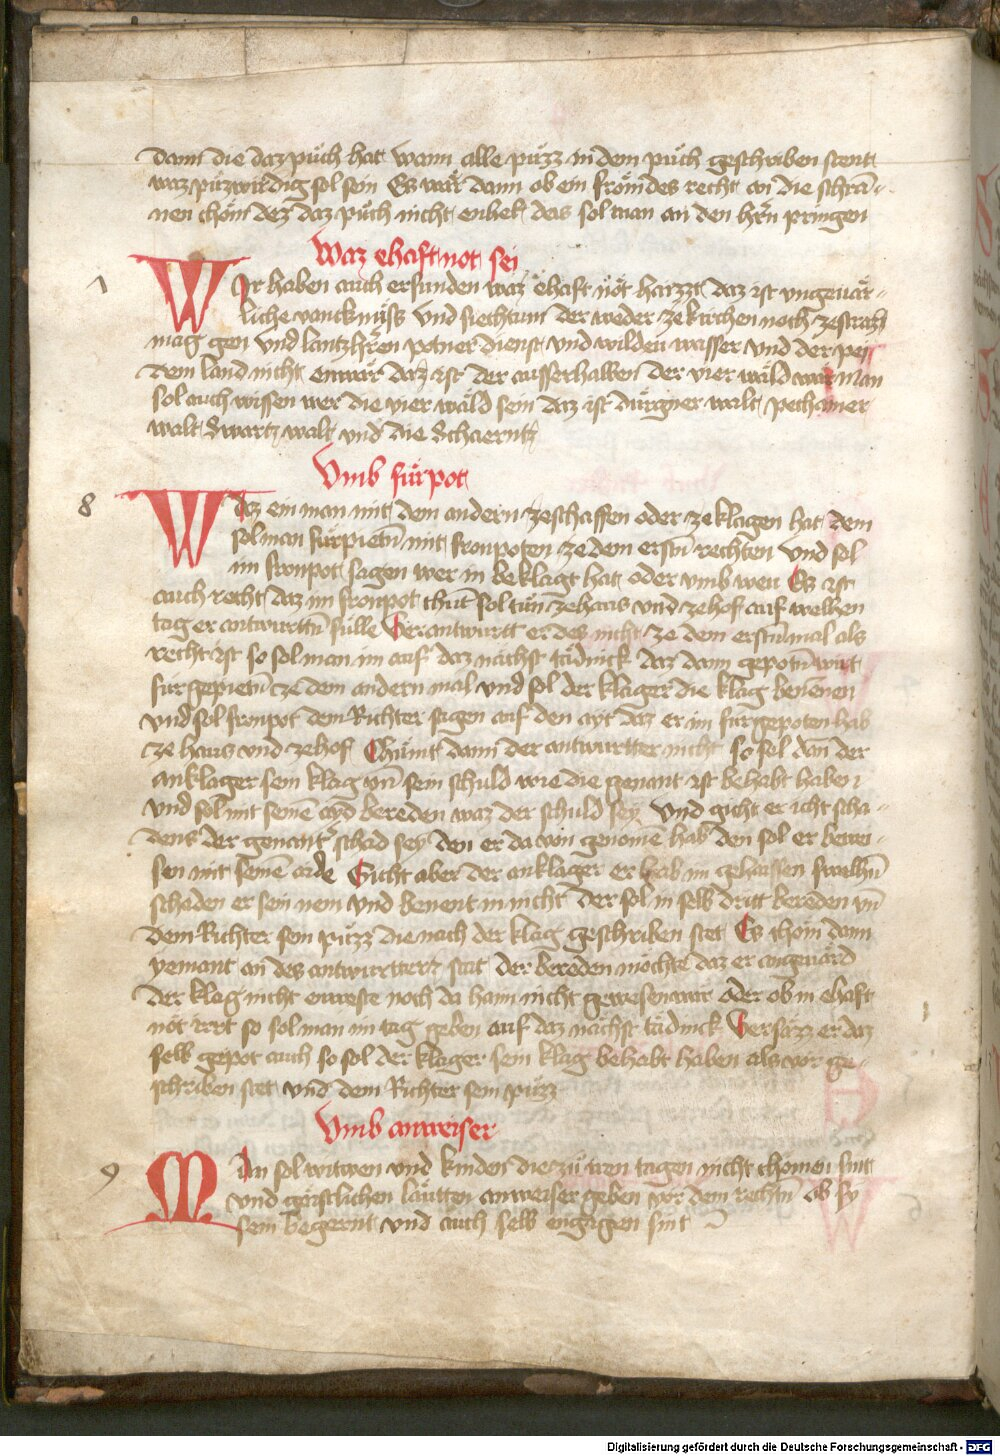 dann die daz půch hat wann alle půzz in dem půch geschriben stent
waz půzwirdig sol sein Es wär dann ob ein frömdes recht an die schra-
nen chöm dez daz půch nicht enhet das sol man an den hrn pringen
Waz ehaft not sei
7 Wir haben auch erfunden waz ehaft nöt haizzt daz ist ungeuär-
liche vancknüss Und siechtum der weder ze kirchen noch ze strazz
mag gen Und lantzhren potner dienst und wilden wasser und der pei
dem land nicht enwär daz ist der ausserhalben der vier wäld wär Man
sol auch wissen wer die vier wäld sein daz ist dürgner walt pehamer
walt Swartzwalt und die Schaerntz
Vmb fürpot
8 Waz ein man mit dem andern ze schaffen oder ze klagen hat dem
sol man fürpieten mit fronpoten ze dem ersten rechten Und sol
im fronpot sagen wer in beklagt hat oder vmb wen Ez ist
auch recht daz im fronpot chunt sol tun ze haus und ze hof auf welhen
tag er antwurttn sulle Verantwurtt er des nicht ze dem ersten mal als
recht ist so sol man im auf daz nächst tädinck daz dann gepotn wirt
fürgepietn ze dem andern mal und sol der klager die klag benennen
und sol fronpot dem Richter sagen auf den ayt daz er im fürgepoten hab
ze haus und ze hof Chümt dann der antwurtter nicht so sol dan der
anklager sein klag vn sein schuld wie die genant ist behabt haben
und sol mit seinē ayd bereden waz der schuld sey Und gicht er icht scha-
dens der genant schad sey den er da von genomē hab den sol er bewei-
sen mit seinē aide Gicht aber der anklager er hab im gehaissen swelhn
schaden er sein nem und benent in nicht der sol in selb dritt bereden vn
dem Richter sein püzz die nach der klag geschriben stet Es chöm dann
yemant an des antwurtters stat der bereden mochte daz er angeuärd
der klag nicht enweste noch da haim nicht gewesen wär oder ob in ehaft
nöt irrt so sol man im tag geben auf daz nächst tädinck Versäzz er daz
selb gepot auch so sol der klager sein klag behabt haben als vor ge-
schriben stet und dem Richter sein püzz
Vmb anweiser
9 Man sol witwen und kinden die zu iren tagen nicht chomen sint
und geistlichen läutten anweiser geben vor dem rechtn ob sy
sein begernt und auch selb engagen sint
Digitalisierung gefördert durch die Deutsche Forschungsgemeinschaft - DFG